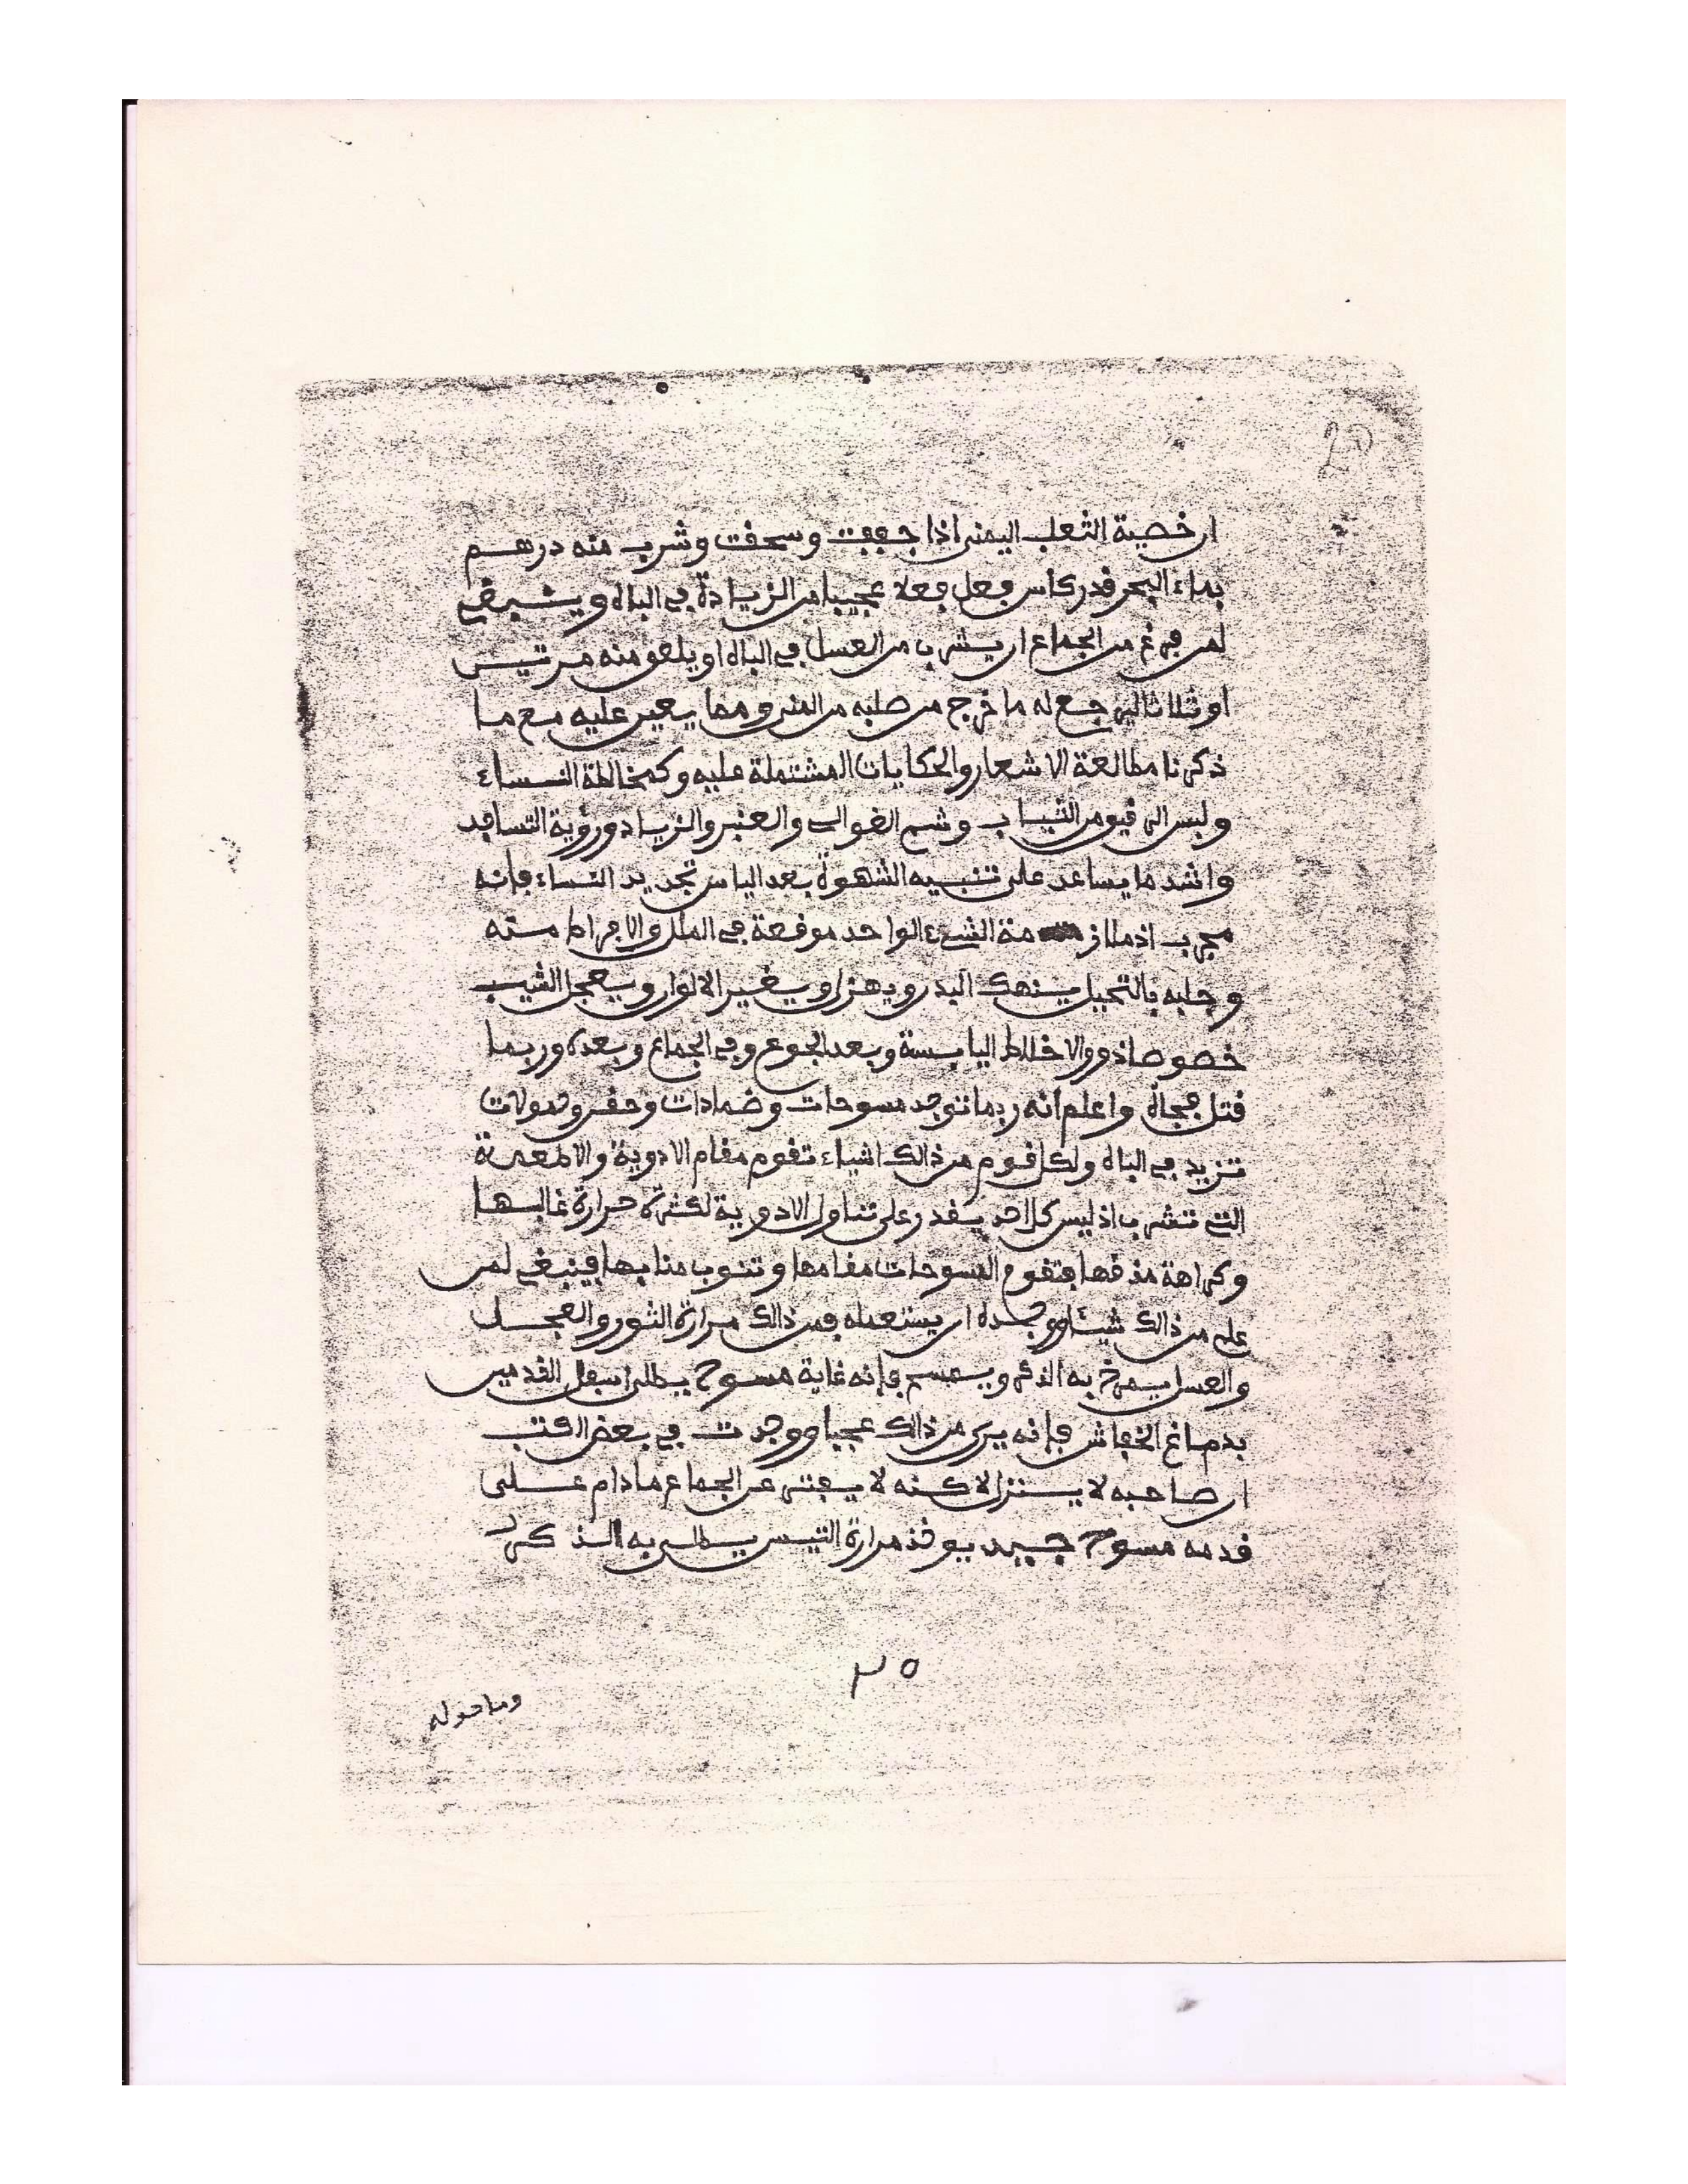 ان خصية الثعلب اليمنى اذا جففت وسحقت وشرب منه درهم
بماء البحر قدر كاس فعل فعلا عجيبا من الزيادة في الباه وينبغي
لمن فرغ من الجماع ان يشرب من العسل في الباه او يلعق منه مرتين
او ثلاثا ليرجع له ما خرج من صلبه من المني ومما يعين عليه مع ما
ذكرنا مطالعة الاشعار والحكايات المشتملة عليه وكمخالطة النساء
ولبس الرقيق من الثياب وشم الغوالي والعنبر والزباد ورؤية التسافد
واشد ما يساعد على تنبيه الشهوة بعد الياس تجديد النساء فإنه
مجرب اذ ملازمة الشيء الواحد موقعة في الملل والافراط منه
وجلبه بالتحيل ينهك البدن ويهزل ويغير الالوان ويعجل الشيب
خصوصا ذوو الاخلاط اليابسة وبعد الجوع وفي الجماع وبعده وربما
قتل فجأة واعلم انه ربما توجد مسوحات وضمادات وحقن وحمولات
تزيد في الباه ولكل قوم من ذالك اشياء تقوم مقام الادوية والاطعمة
التي تشرب اذ ليس كل احد يقدر على تناول الادوية لكثرة حرارة غالبها
وكراهة مذقها فتقوم المسوحات مقامها وتنوب منابها فينبغي لمن
علم من ذالك شيئا ووجده ان يستعمله فمن ذالك مرارة الثور والعجل
والعسل يمرخ به الذكر ويمسح فإنه غاية مسوح يطلى اسفل القدمين
بدماغ الخفاش فإنه يرى من ذالك عجبا ووجدت في بعض الكتب
ان صاحبه لا ينزل لاكنه لا يفتر عن الجماع مادام على
قدمه مسوح جيد يوخذ مرارة التيس يطلى به الذكر
٢٥
وما حوله